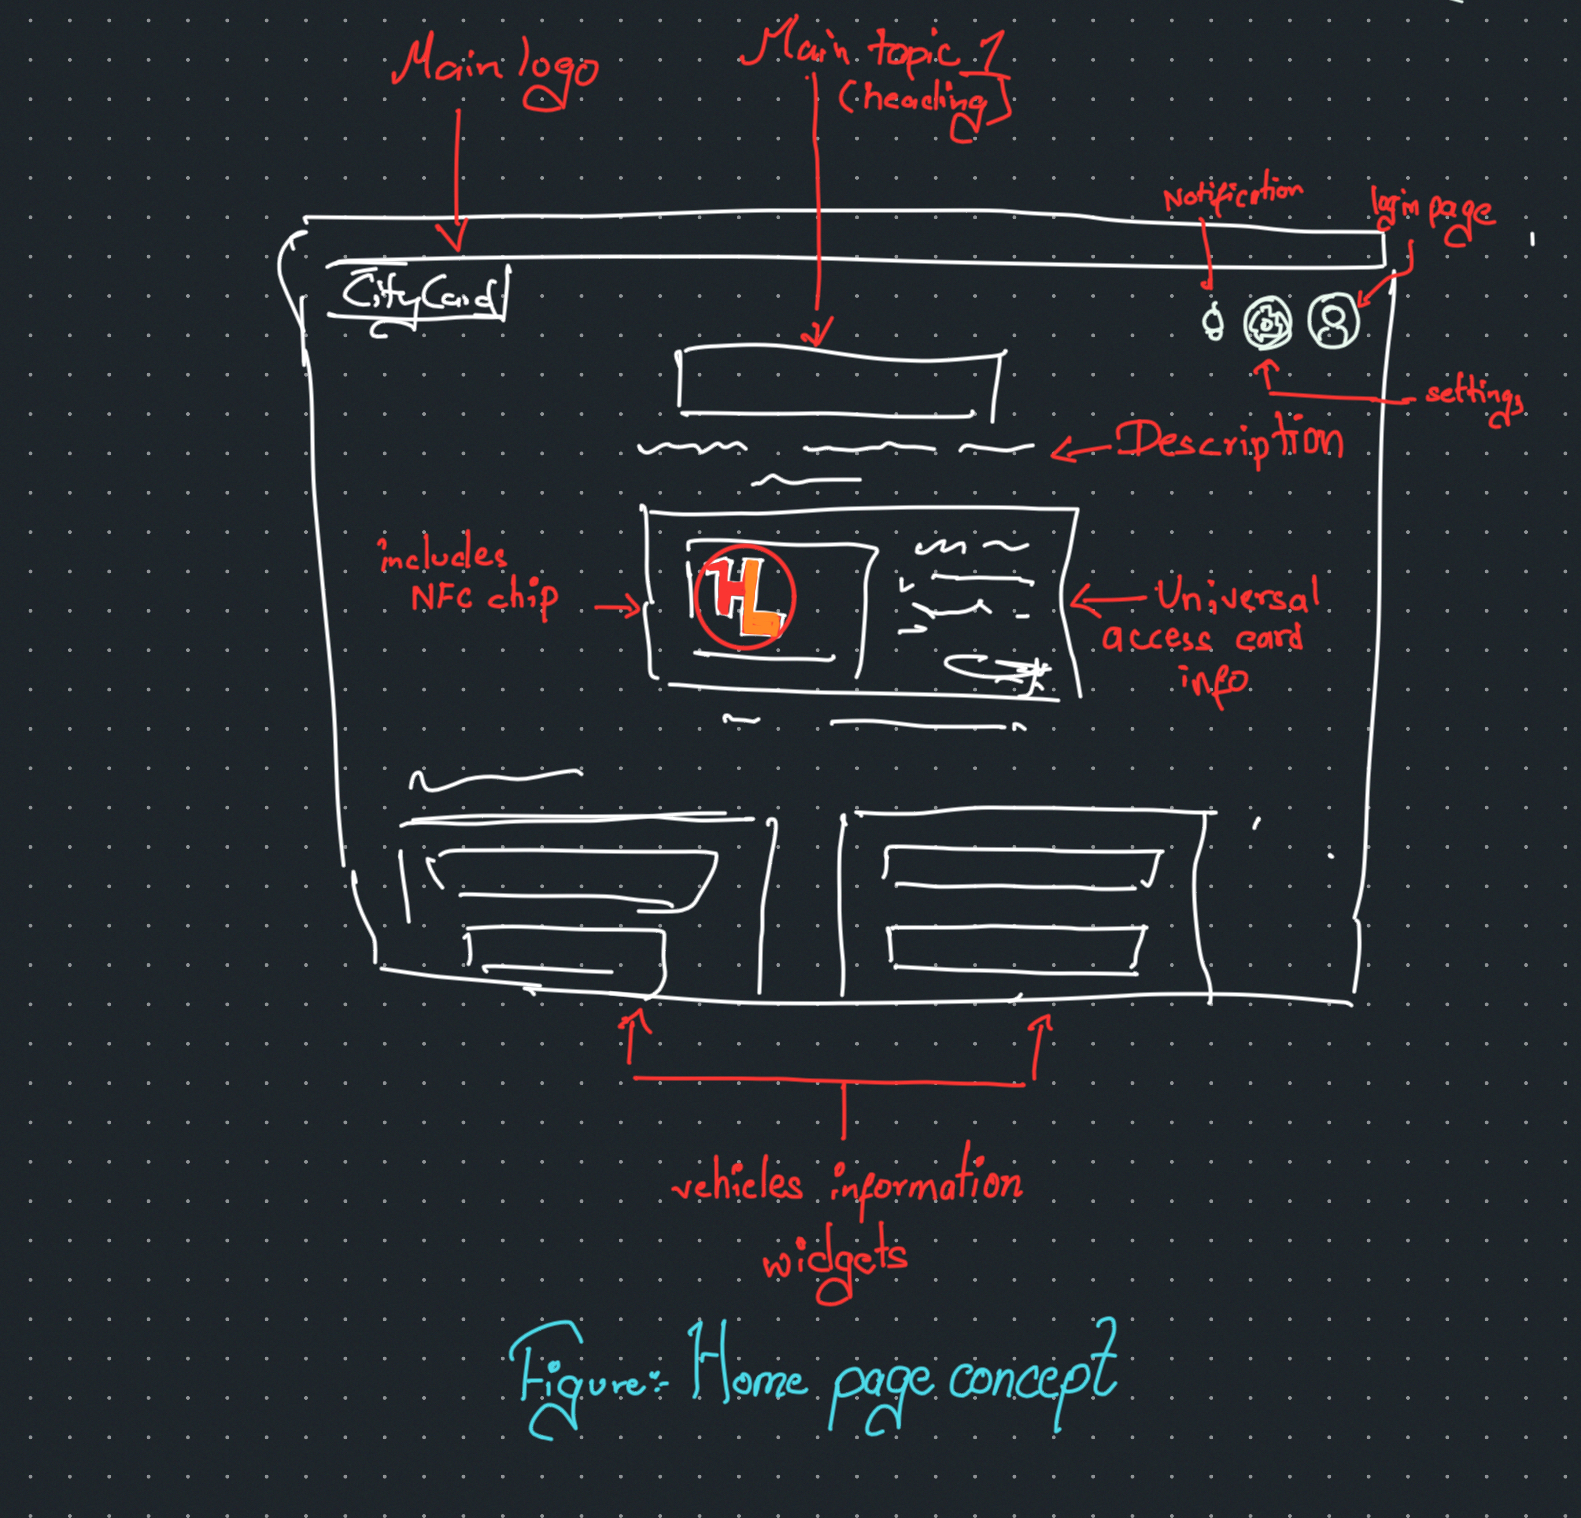 Main logo
Main topic 1
(heading)
Notification
login page
CityCard
settings
Description
includes
NFC chip
HL
Universal
access card
info
vehicles information
widgets
Figure:- Home page concept